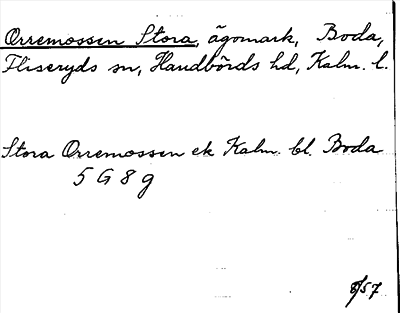 Orremossen Stora, ägomark, Boda,
Fliseryds sn, Handbörds hd, Kalm. l.
Stora Orremossen ek Kalm. bl. Boda
5 G 8 g
8/57